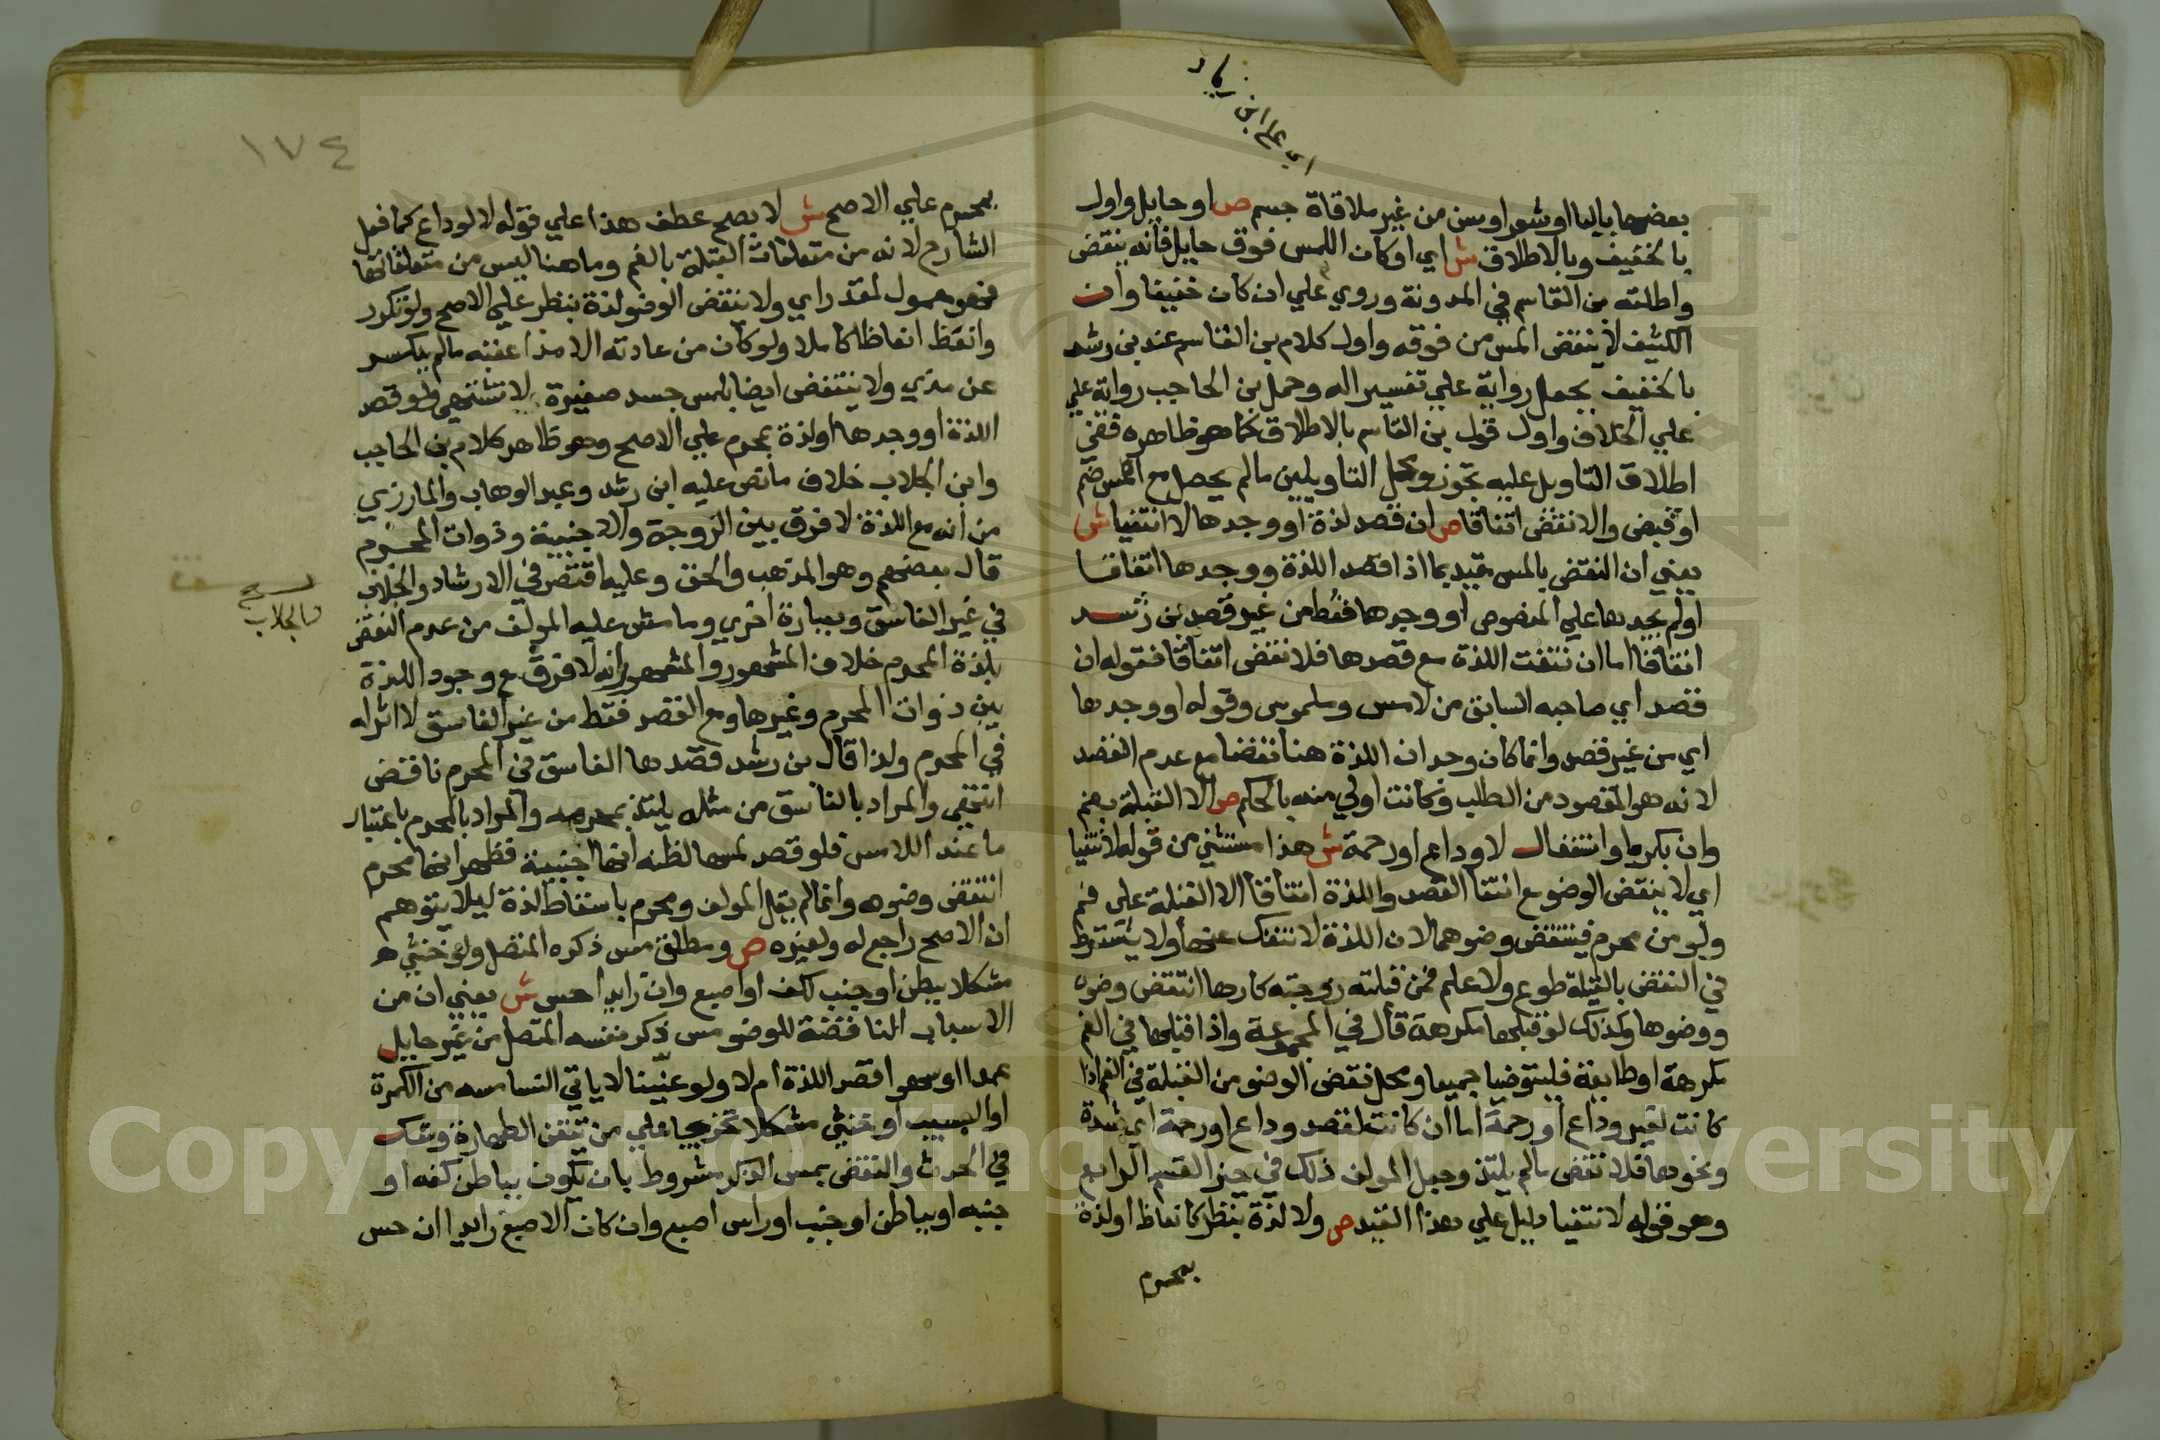 اي علي ابن زياد
بعضها باليا او شعر او سن من غير ملاقاة جسم ص او حايل واول
بالخفيف وبالاطلاق ش اي او كان اللمس فوق حايل فانه ينقض
واطلقه بن القاسم في المدونة وروي علي ان كان خفيفا وان
الكثيف لا ينقض المس من فوقه واول كلام بن القاسم عند بن رشد
بالخفيف بجعل رواية علي تفسيرا له وحمل بن الحاجب رواية علي
علي الخلاف واول قول بن القاسم بالاطلاق كما هو ظاهره ففي
اطلاق التاويل عليه تجوز ومحل التاويلين ما لم يحصل مع اللمس ضم
او قبض والا نقض اتفاقا ص ان قصد لذة او وجدها لا انتفيا ش
يعني ان النقض بالمس مقيد بما اذا قصد اللذة ووجدها اتفاقا
او لم يجدها علي المنصوص او وجدها فقط من غير قصد بن رشد
اتفاقا اما ان نتفت اللذة مع قصدها فلا نقض اتفاقا فقوله ان
قصد اي صاحبه السابق من لامس وملموس وقوله او وجدها
اي من غير قصد وانما كان وجدان اللذة هنا نقضا مع عدم القصد
لانه هو المقصود من الطلب فكانت اولي منه بالحكم ص الا القبلة بفم
وان بكره او استغفال لا وداع او رحمة ش هذا مستثني من قوله لا انتفيا
اي لا ينقض الوضوء انتفا القصد واللذة اتفاقا الا القبلة علي فم
ولو من محرم فينتقض وضوهما لان اللذة لا تنفك عنها ولا يشترط
في النقض بالقبلة طوع ولا علم فمن قبلته زوجته كارها انتقض وضوه
ووضوها وكذلك لو قبلها مكرهة قال في المجموعة واذا قبلها في الفم
مكرهة او طايعة فليتوضيا جميعا ومحل نقض الوضو من القبلة في الفم اذا
كانت لغير وداع او رحمة اما ان كانت لقصد وداع او رحمة اي شدة
ونحوها فلا نقض ما لم يلتذ وجعل المولف ذلك في حيز القسم الرابع
وهو قوله لا انتفيا دليل علي هذا القيد ص ولا لذة بنظر كانعاظ او لذة
بمحرم
١٧٤
بمحرم علي الاصح ش لا يصح عطف هذا علي قوله لا لوداع كما فعل
الشارح لانه من متعلقات القبلة بالفم وما هنا ليس من متعلقاتها
فهو معمول لمقدر اي ولا ينقض الوضو لذة بنظر علي الاصح ولو تكرر
وانعظ انعاظا كاملا ولو كان من عادته الامذا عقبه ما لم ينكسر
عن مذي ولا ينتقض ايضا بلمس جسد صغيرة لا تشتهي ولو قصد
اللذة او وجدها او لذة بمحرم علي الاصح وهو ظاهر كلام بن الحاجب
وابن الجلاب خلاف ما نص عليه ابن رشد وعبد الوهاب والمازري
من انه مع اللذة لا فرق بين الزوجة والاجنبية وذوات المحرم
قال بعضهم وهو المذهب والحق وعليه اقتصر في الارشاد والجلاب
في غير الفاسق وبعبارة اخري وما مشي عليه المولف من عدم النقض
بلذة المحرم خلاف المشهور والمشهور انه لا فرق مع وجود اللذة
بين ذوات المحرم وغيرها ومع القصد فقط من غير الفاسق لا اثر له
في المحرم ولذا قال بن رشد قصدها الفاسق في المحرم ناقض
انتهي والمراد بالفاسق من مثله يلتذ بمحرمه والمراد بالمحرم باعتبار
ما عند اللامس فلو قصد لمسها لظنه انها اجنبية فظهر انها محرم
انتقض وضوه وانما لم يقل المولف ومحرم باسقاط لذة ليلا يتوهم
ان الاصح راجع له ولغيره ص ومطلق مس ذكره المتصل ولو خنثي
مشكلا ببطن او جنب لكف او اصبع وان زايدا حس ش يعني ان من
الاسباب الناقضة للوضو مس ذكر نفسه المتصل من غير حايل
عمدا او سهوا قصد اللذة ام لا ولو عنينا لا ياتي النسا مسه من الكمرة
او العسيب او خنثي مشكلا تخريجا علي من تيقن الطهارة وشك
في الحدث والنقض بمس الذكر مشروط بان يكون بباطن كفه او
جنبه او بباطن او جنب او راس اصبع وان كان الاصبع زايدا ان حس
بالجلاب